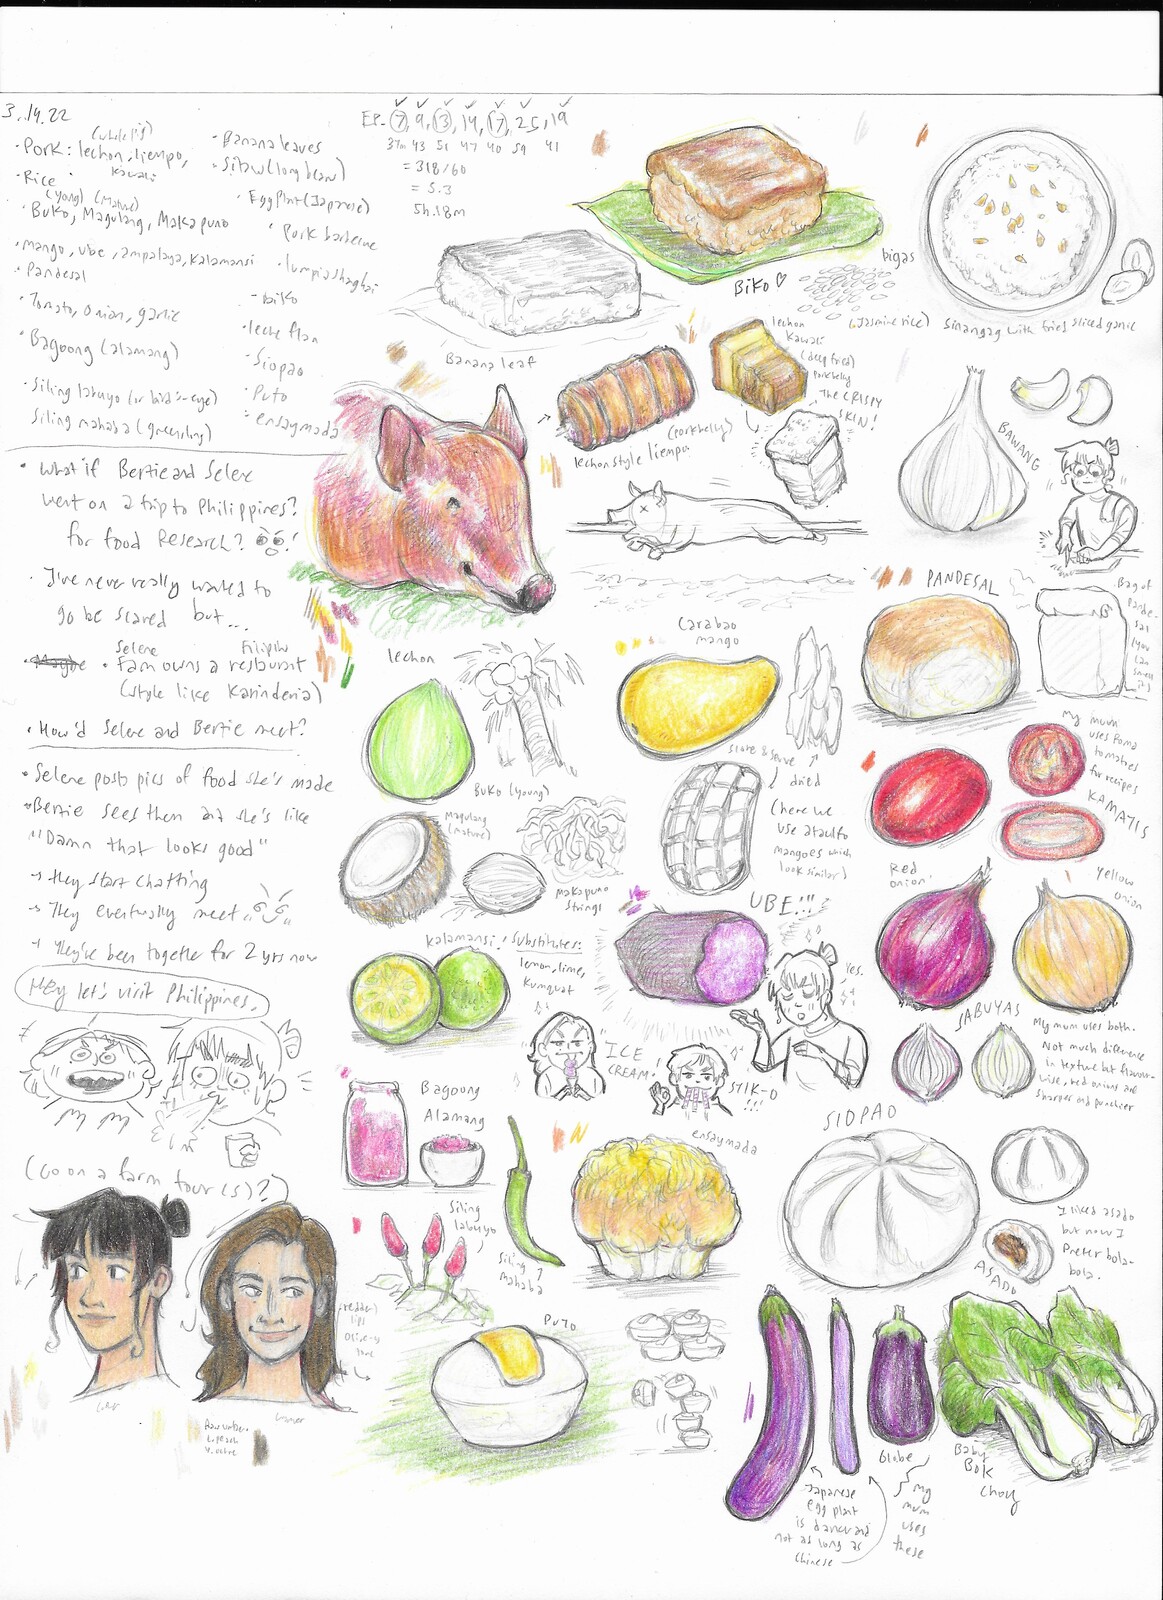 3.14.22
(whole pig)
• Pork: lechon, liempo,
kawali
• Rice
(young) (mature)
• Buko, Magulang, Makapuno
• Mango, ube, ampalaya, kalamansi
• Pandesal
• Tomato, onion, garlic
• Bagoong (alamang)
• Siling labuyo (or bird's-eye)
Siling mahaba (green
• Banana leaves
• Sitaw (long bean)
• Eggplant (Japanese)
• Pork barbecue
• lumpia shanghai
- biko
• leche flan
• Siopao
• Puto
• ensaymada
EP. 7, 9, 13, 14, 17, 25, 19
37m 43 51 47 40 59 41
= 318/60
= 5.3
5h.18m
• What if Bertie and Selene
went on a trip to Philippines?
for food Research?
• I've never really wanted to
go be scared but...
Selene Filipino
• Maybe • Fam owns a restaurant
(style like Karinderia)
• How'd Selene and Bertie meet?
• Selene posts pics of food she's made
• Bertie sees them and she's like
"Damn that looks good"
→ They start chatting
→ They eventually meet
→ They've been together for 2 yrs now
Hey let's visit Philippines.
(Go on a farm tour(s)?)
redder
lips
Olive-y
tone
Raw umber
L. peach
Y. ochre
Banana leaf
Biko
bigas
(Jasmine rice)
Sinangag with fried sliced garlic
lechon
Kawali
(deep fried)
porkbelly
The CRISPY
SKIN!
(porkbelly)
lechon style liempo
BAWANG
lechon
Carabao
mango
PANDESAL
Bag of
Pande-
sal
(you
can
smell
it)
slice & serve
dried
(here we
use ataulfo
mangoes which
look similar)
Buko (young)
Magulang
(mature)
Makapuno
strings
My mum
uses Roma
tomatoes
for recipes
KAMATIS
Red
onion
Yellow
onion
SABUYAS
My mum uses both.
Not much difference
in texture but flavour-
wise, red onions are
sharper and punchier
UBE!!!
Yes.
Kalamansi! Substitutes:
lemon, lime,
kumquat
ICE
CREAM!
STIK-O
!!!
Bagoong
Alamang
Siling
labuyo
Siling
mahaba
ensaymada
SIOPAO
I liked asado
but now I
Prefer bola-
bola.
ASADO
Puto
Japanese
egg plant
is darker and
not as long as
Chinese
Globe
my
mum
uses
these
Baby
Bok
Choy